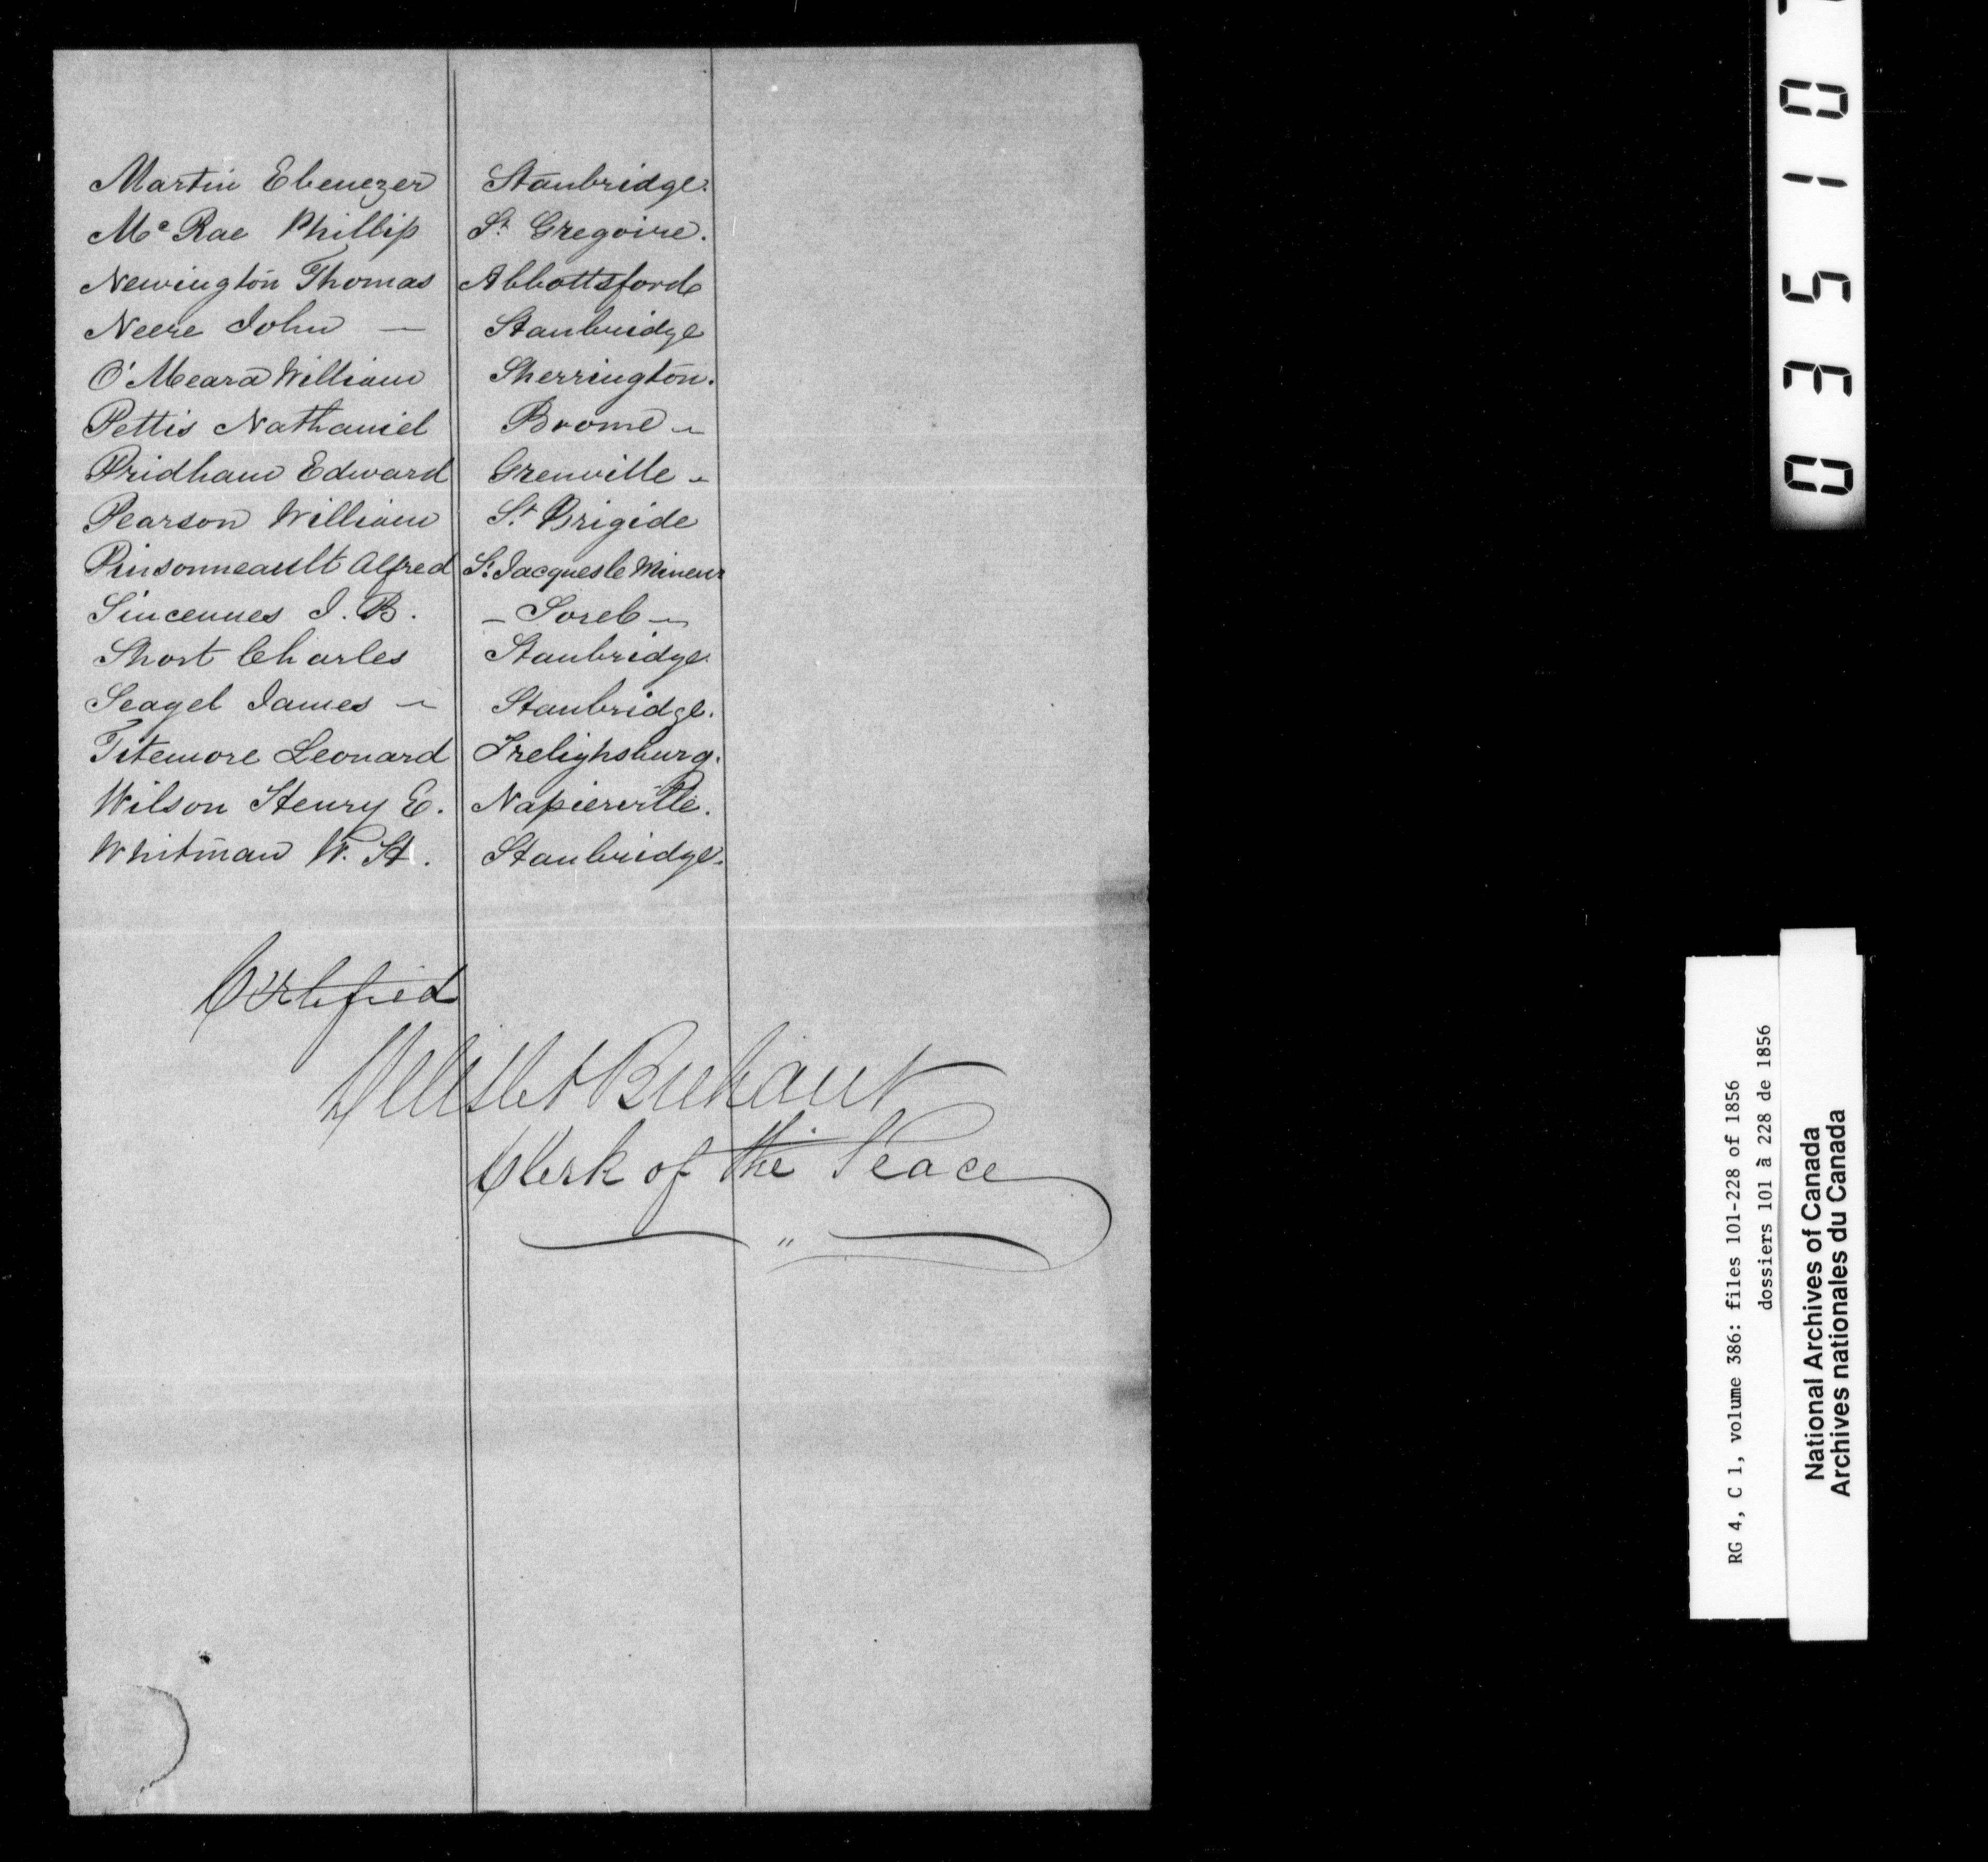 Martin Ebenezer Stanbridge.
Mc Rae Phillip St. Gregoire.
Newington Thomas Abbottsford
Neere John — Stanbridge
O'Meara William Sherrington.
Pettis Nathaniel Brome –
Pridham Edward Grenville –
Pearson William St. Brigide
Pinsonneault Alfred St. Jacques le Mineur
Sincennes J. B. – Sorel –
Short Charles Stanbridge.
Seagel James – Stanbridge.
Titemore Leonard Frelighsburg.
Wilson Henry E. Napierville.
Whitman W. H. Stanbridge.
Certified
Delisle & Brehaut
Clerk of the Peace
"
03510
RG 4, C 1, volume 386: files 101-228 of 1856
dossiers 101 à 228 de 1856
National Archives of Canada
Archives nationales du Canada